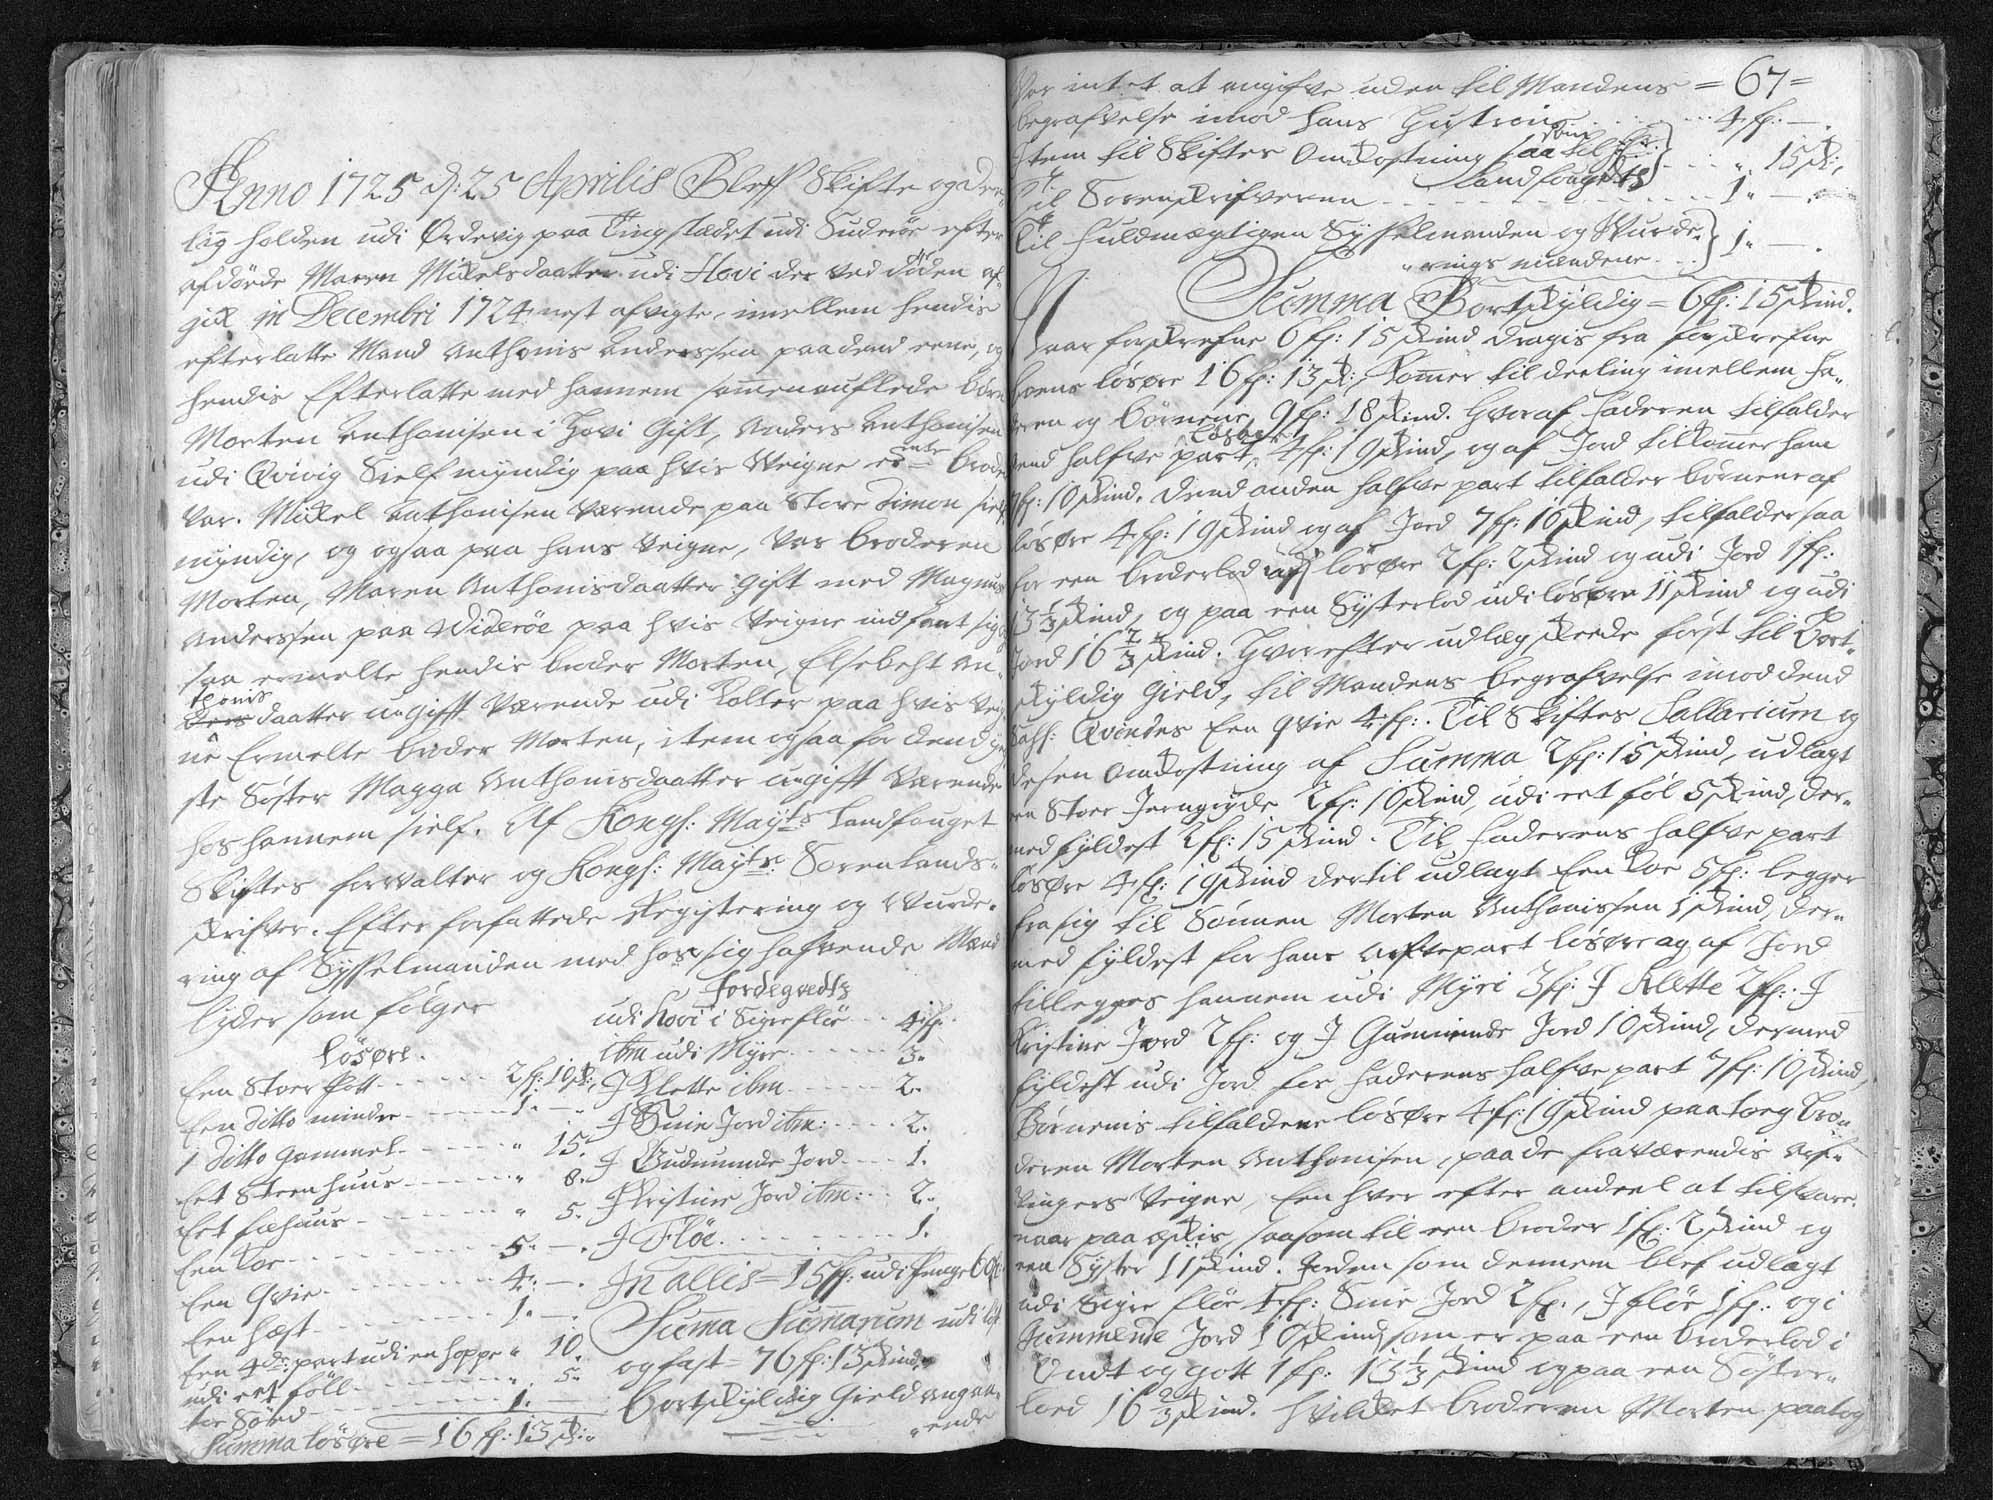 Anno 1725 d: 25 Aprilis Bleff Skifte og dee-
ling holden udi Ørdevig paa Tingstædet udi Suderöe efter
afdöde Maren Mikelsdaatter udi Hovi der ved döden af-
gik in Decembri 1724 nest afvigte, imellem hendis
efterlatte Mand Anthonis Anderssen paa dend eene, og
hendis Efterlatte med hannem sammenauflede Börn
Morten Anthonisen i Hovi Gift, Anders Anthonisen
udi Qvivig Sielf myndig paa hvis Veigne ermte broder
var. Mikel Anthonisen værende paa Store Dimon sielf
myndig, og ogsaa paa hans Veigne, var broderen
Morten, Maren Anthonisdaatter gift med Magnus
Anderssen paa Wideröe paa hvis Veigne indfant sig og
saa ermelte hendis broder Morten, Elsebeht An-
thonis daatter ugifft værende udi Kolter paa hvis Veig
ne Ermelte broder Morten, item ogsaa for dend yng
ste Söster Magga Anthonisdaatter ugifft værende
hos hannem sielf. Af Kongl: Mayts Landfouget
Skiftes forvalter og Kongl: Mayts: Sorenlands-
skrifver. Efter forfattede Registering og Vurde-
ring af Sysselmanden med hos sig hafvende Mænd
lyder som fölger
Lösöre.
Een Stoer Pott - - - 2 fl: 10 sk:
Een Ditto mindre - - - 1. —
1 Ditto gammel - - - " 15.
Eet Steenhuus - - - " 8.
Eet fæhuus - - - " 5.
Een Koe - - - 5. —.
Een Qvie - - - 4. —.
Een Hæst - - - 1. —.
Een 4de part udi en hoppe " 10.
udi eet föll - - - " 5.
- - - 1. —
Summa lösöre = 16 fl: 13 sk:
Jordegoedts
udi Hovi i Sigreflöe - - 4 fl.
ibm udi Myre - - - 3.
J Klette ibm - - - 2.
J Suie Jord ibm: - - - 2.
J Gudmunde Jord - - - 1.
J Kristine Jord ibm: - - 2.
J Flöe - - - 1.
In allis = 15 fl: udi penge 60 fl
Suma Sumarum udi löst
og fast = 76 fl: 13 skind.
bortskyldig Gield angaa-
ende
= 67 =
var intet at angifve uden til Mandens
begrafvelse imod hans Hustrois - - - 4 fl: —.
Item til Skiftes omkostning saa til
Landfouget - - - " 15 sk:
Til Sorenskrifveren - - - 1. —.
Til fuldmægtigen Sysselmanden og Vurde-
rings mændene - - - 1. —.
Summa Bortskyldig = 6 fl: 15 skind.
Naar forskrefne 6 fl: 15 skind dragis fra forskrefne
boens lösöre 16 fl: 13 sk: kommer til deeling imellem fa-
deren og börnene, 9 fl: 18 skind. Hvoraf faderen tilfalder
dend halfve part lösöre 4 fl: 19 skind, og af Jord tilkommer ham
7 fl: 10 skind. Dend anden halfve part tilfalder börnene af
lösöre 4 fl: 19 skind og af Jord 7 fl: 10 skind, tilfalder saa
for een broderlod af lösöre 2 fl: 2 skind og udi Jord 1 fl:
13 1/3 skind, og paa een Systerlod udi lösöre 11 skind og udi
Jord 16 2/3 skind. Hvorefter udlæg skeede först til Bort-
skyldig Gield, til Mandens begrafvelse imod dend
Sahl: Qvindes Een qvie 4 fl:. Til Skiftes Sallarium og
desen omkostning af Summa 2 fl: 15 skind, udlagt
een Stoer Jerngryde 2 fl: 10 skind, udi eet föl 5 skind, der-
med fyldest 2 fl: 15 skind. Til faderens halfve part
lösöre 4 fl: 19 skind dertil udlagt Een koe 5 fl: legger
fra sig til Sönnen Morten Anthonissen 1 skind, der-
med fyldest for hans arftepart lösöre og af Jord
tillegges hannem udi Myri 3 fl: J Klette 2 fl: J
Kristine Jord 2 fl: og J Gummunde Jord 10 skind, dermed
fyldest udi Jord for faderens halfve part 7 fl: 10 skind
Börnenis tilfaldene lösöre 4 fl: 19 skind paatoeg bro-
deren Morten Anthonisen, paa de fraværendis arf-
vingers Veigne, Een hver efter andeel at tilsvare.
naar paa æskis, saasom til een broder 1 fl: 2 skind og
een Syster 11 skind. Jorden som dennem blef udlagt
udi Sigre flöe 4 fl: Suie Jord 2 fl:, J flöe 1 fl: og i
Gummunde Jord 10 skind som er paa een broderlod i
Ondt og gott 1 fl: 13 1/3 skind og paa een Söster-
lod 16 2/3 skind. hvilket broderen Morten paatog